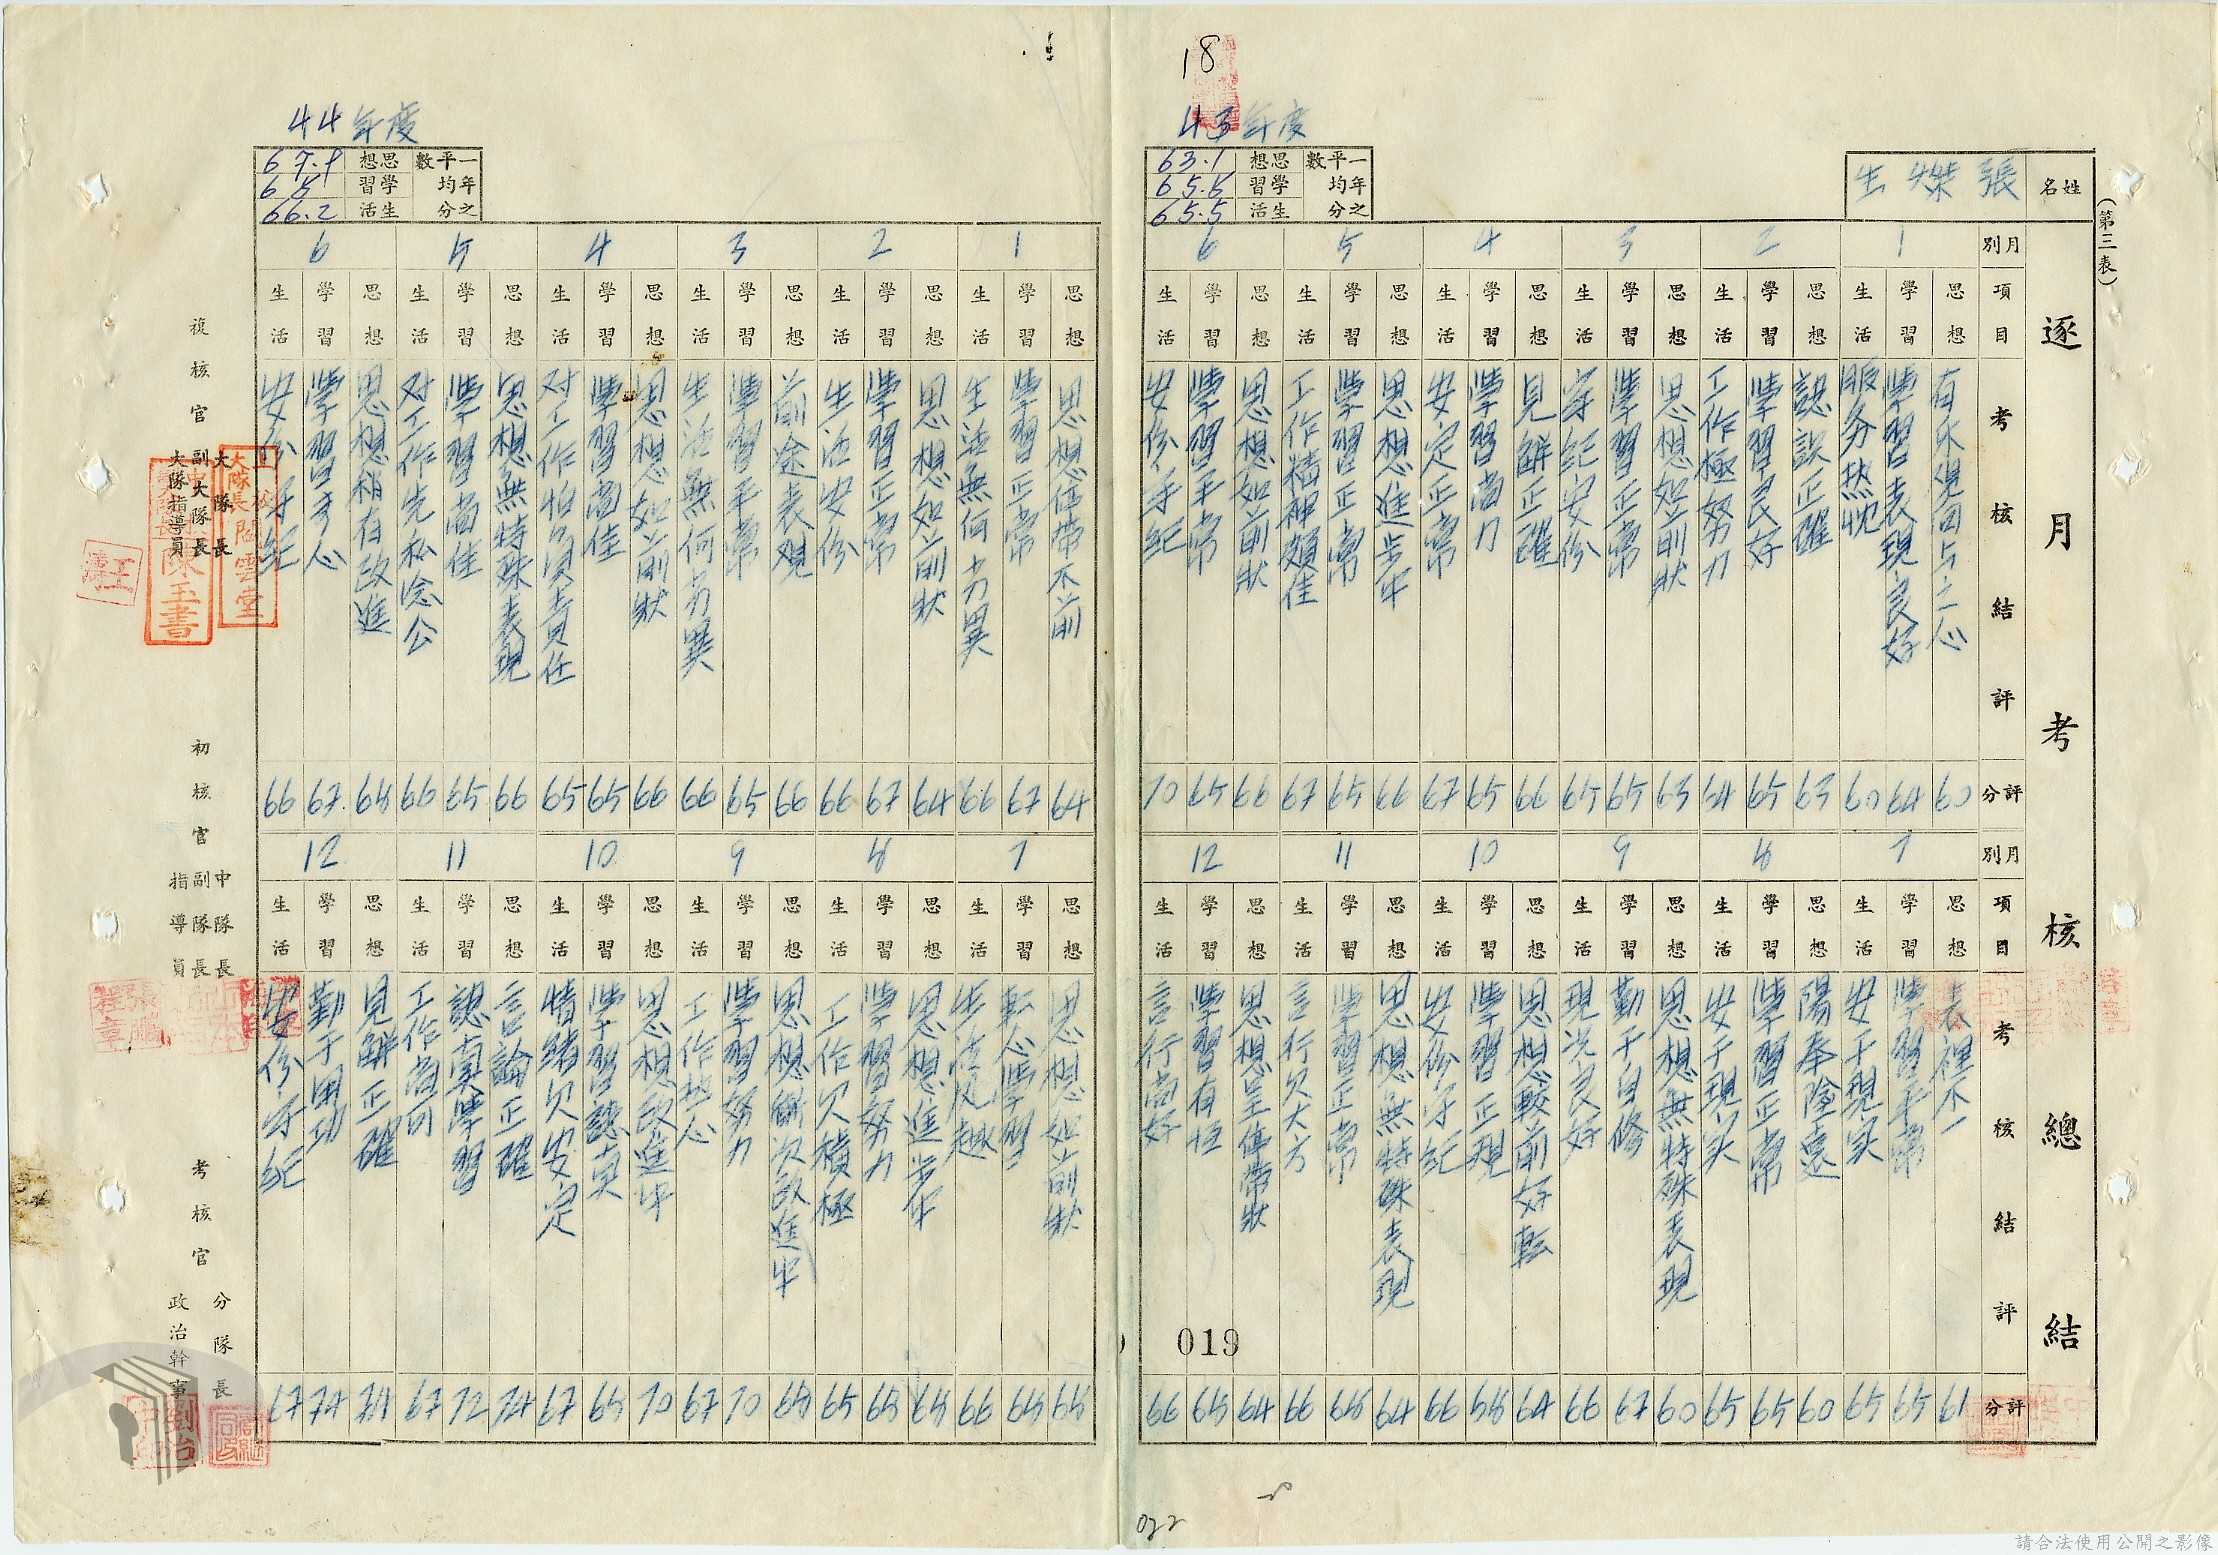 （第三表）
逐月考核總結
姓名
張燦生
18
43年度
一年之平均分數
思想 63.1
學習 65.5
生活 65.5
月別
項目
考核結評
評分
1
思想
學習 學習表現良好 64
生活 服务热忱 60
2
思想 認識正確 63
學習 學習良好 65
生活 工作極努力
3
思想 思想如前狀 63
學習 學習正常 65
生活 守紀安份 65
4
思想 見解正確 66
學習 學習尚力 65
生活 安定正常 67
5
思想 思想進步中 66
學習 學習正常 65
生活 工作精神頗佳 67
6
思想 思想如前狀 66
學習 學習平常 65
生活 安份守紀 70
月別
項目
考核結評
評分
7
思想 表裡不一 61
學習 學習平常 65
生活 安于現实 65
8
思想 陽奉陰違 60
學習 學習正常 65
生活 安于現实 65
9
思想 思想無特殊表現 60
學習 勤于自修 67
生活 現况良好 66
10
思想 思想較前好転 64
學習 學習正現 68
生活 安份守紀 66
11
思想 思想無特殊表現 64
學習 學習正常 68
生活 言行欠大方 66
12
思想 思想呈停滯狀 64
學習 學習有恒 65
生活 言行尚好 66
019
022
44年度
一年之平均分數
思想
學習
生活 66.2
1
思想 思想停滯不前 64
學習 學習正常 67
生活 生活無何劣異 66
2
思想 思想如前狀 64
學習 學習正常 67
生活 生活安份 66
3
思想 前途表观 66
學習 學習平常 65
生活 生活無何劣異 66
4
思想 思想如前狀 66
學習 學習尚佳 65
生活 对工作怕負責任 65
5
思想 思想無特殊表現 66
學習 學習尚佳 65
生活 对工作先私念公 66
6
思想 思想稍有改進 68
學習 學習專心 67
生活 安份守紀 66
7
思想 思想如前狀 65
學習 転心學習 65
生活 生活乏趣 66
8
思想 思想進步中 68
學習 學習努力 68
生活 工作欠積極 65
9
思想 思想漸次改進中 68
學習 學習努力 70
生活 工作热心 67
10
思想 思想改進中 70
學習 學習認真 65
生活 情緒欠安定 67
11
思想 言論正確 74
學習 認真學習 72
生活 工作尚可 67
12
思想 見解正確
學習 勤于用功 74
生活 安份守紀 67
複核官
大隊長
副大隊長
大隊指導員
初核官
中隊長
副隊長
指導員
考核官
分隊長
政治幹事
大隊長閻雲堂
陳玉書
張鵬程章
請合法使用公開之影像